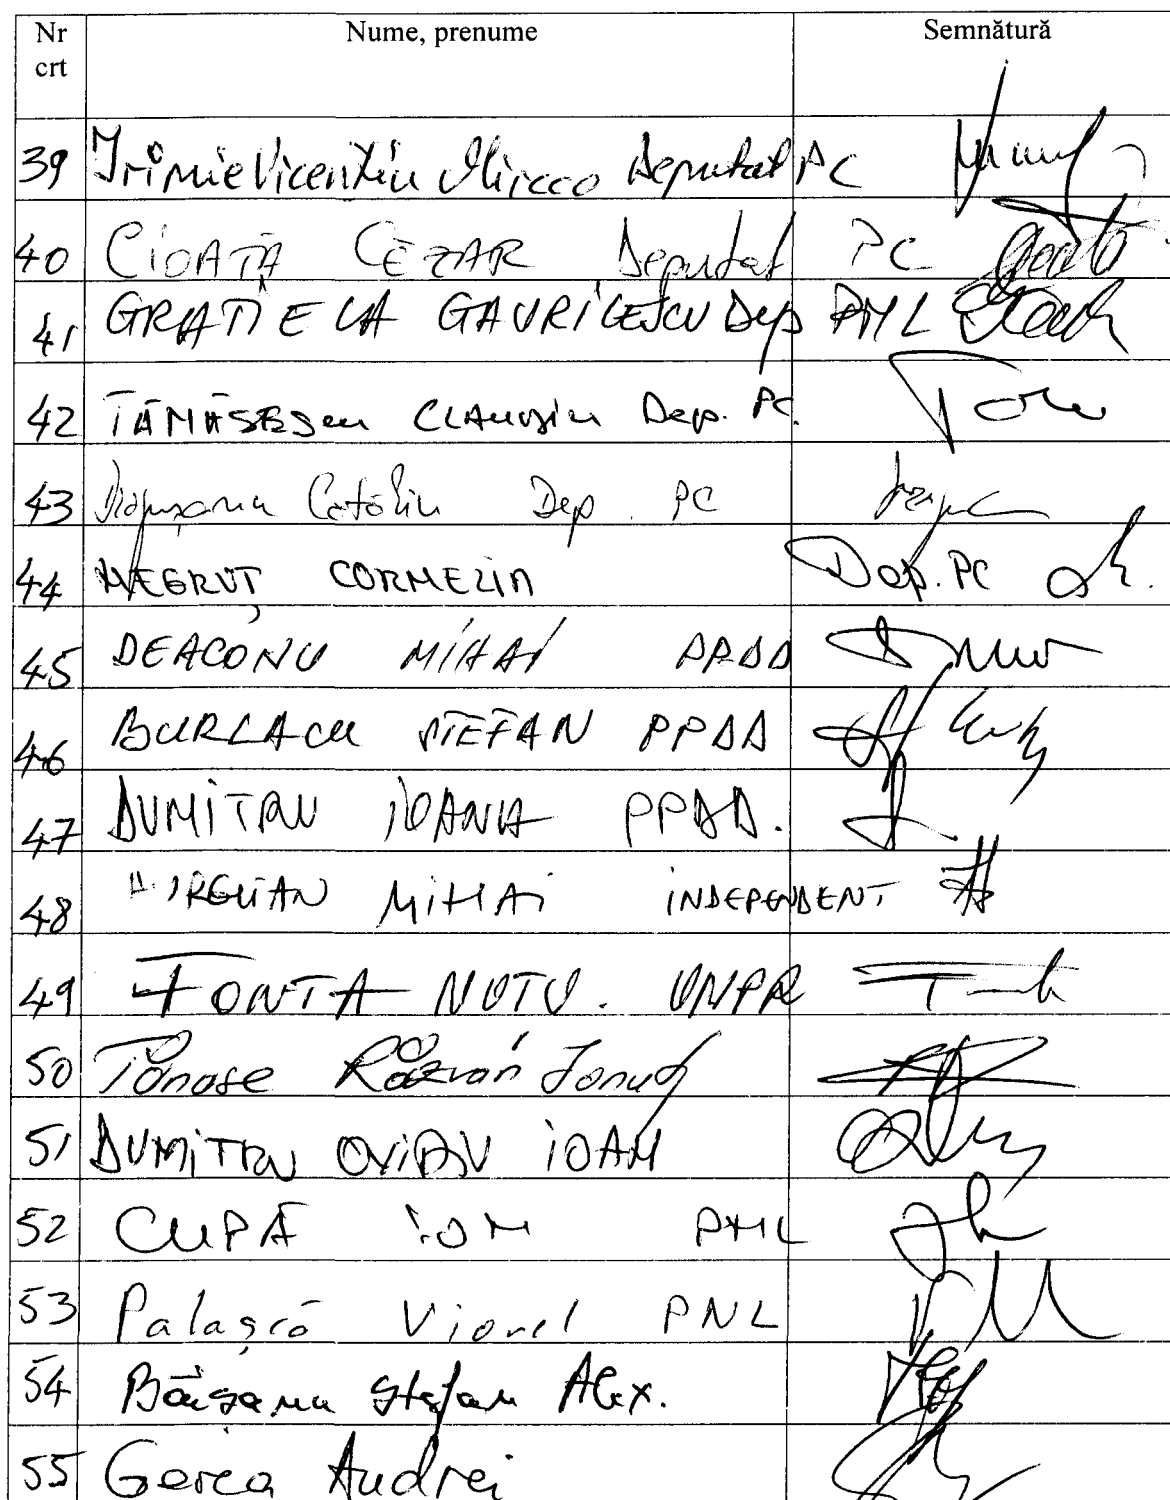 Nr crt Nume, prenume Semnătură
39 Irimie Vicentiu Mircea Deputat PC
40 CIOATĂ CEZAR Deputat PC
41 GRAȚIELA GAVRILESCU Dep PNL
42 TĂMĂSESCU CLAUDIU Dep. PC.
43 Catalin Dep. PC
44 NEGRUȚ CORNELIA Dep. PC
45 DEACONU MIHAI PPDD
46 BURLACU ȘTEFAN PPDD
47 DUMITRU IOANA PPDD.
48 MIHAI INDEPENDENT
49 FONTA NUTU. UNPR
50 Tănase Răzvan Ionuț
51 DUMITRU OVIDIU IOAN
52 CUPĂ ION PNL
53 Palașcă Viorel PNL
54 Băișanu Ștefan Alex.
55 Gerea Andrei